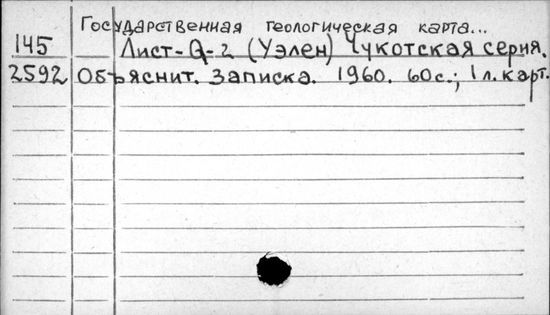 Государственная геологическая карта...
145 Лист-Q-2 (Уэлен) Чукотская серия.
2592 Объяснит. записка. 1960. 60с.; 1 л. карт.